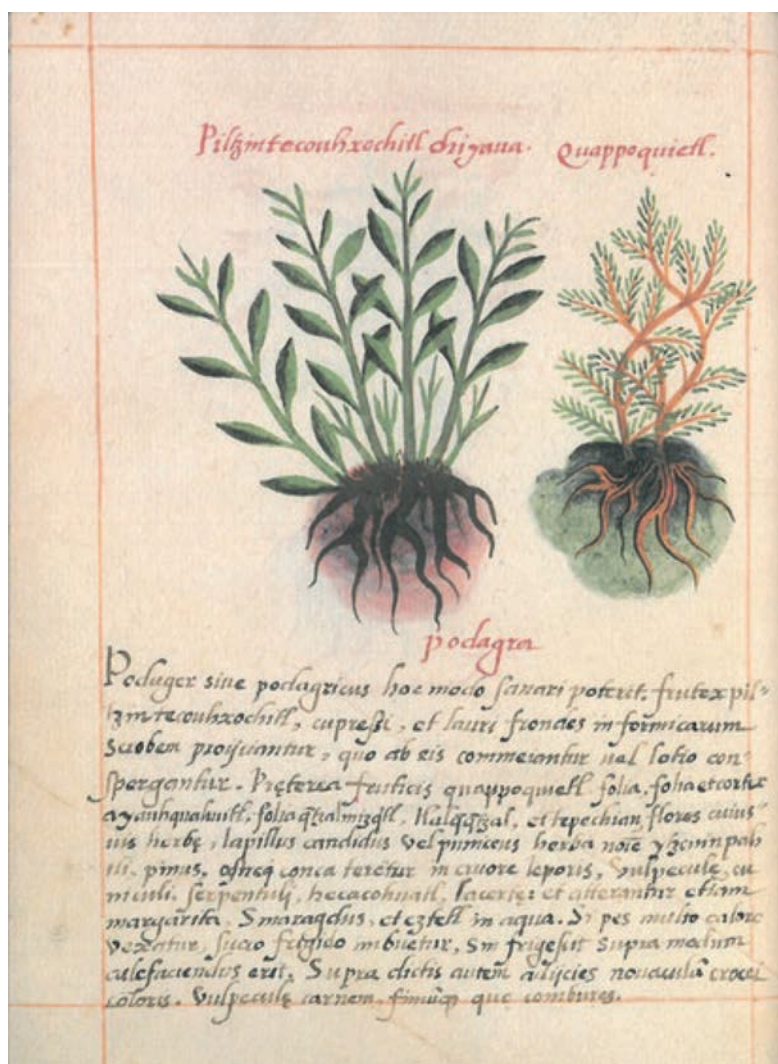 Piltzintecouhxochitl chiyaua. Quappoquietl.
podagra
Poduger sive podagricus hoc modo sanari poterit. frutex pil-
tzintecouhxochitl, cupressi, et lauri frondes in formicarum
scrobem proijciantur, quo ab eis commeiantur uel lotio con-
spergantur. Pręterea fruticis quappoquietl folia, folia et cortex
ayauhquahuitl, folia
et tepechian, flores cuius
uis herbę, lapillus candidus vel puniceus herba
pinus, conca teretur in cruore leporis, vulpeculę, cu
niculi, serpentuli, hecacohuatl, lacertę: et atterantur etiam
margarita, Smaragdus, et eztetl in aqua. Si pes multo calore
vexatur, succo frigido imbuetur, Sin frigescit supra modum
calefaciendus erit. Supra dictis autem adijcies crocei
coloris. Vulpeculę carnem, que combures.